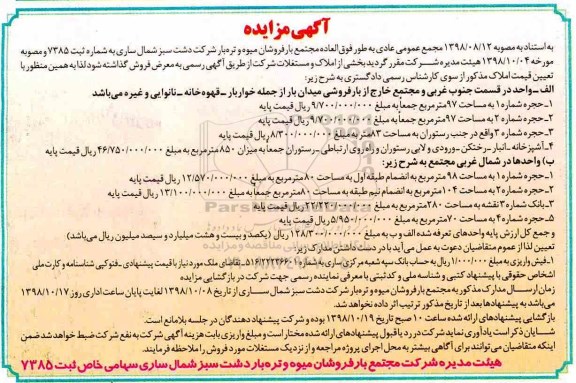 آگهی مزایده
به استناد به مصوبه ۱۳۹۸/۰۸/۱۲ مجمع عمومی عادی به طور فوق العاده مجتمع بارفروشان میوه و تره بار شرکت دشت سبز شمال ساری به شماره ثبت ۷۳۸۵ و مصوبه
مورخه ۱۳۹۸/۱۰/۰۴ هیئت مدیره شرکت مقرر گردید بخشی از املاک و مستغلات شرکت از طریق آگهی رسمی به معرض فروش گذاشته شود لذا به همین منظور با
تعیین قیمت املاک مذکور از سوی کارشناس رسمی دادگستری به شرح زیر:
الف -واحد در قسمت جنوب غربی و مجتمع خارج از بارفروشی میدان بار از جمله خواربار -قهوه خانه -نانوایی و غیره می‌باشد
۱-حجره شماره ۱ به مساحت ۹۷مترمربع جمعا به مبلغ ۹/۷۰۰/۰۰۰/۰۰۰ ریال قیمت پایه
۲-حجره شماره ۲ به مساحت ۹۷مترمربع جمعا به مبلغ ریال قیمت پایه
۳-حجره شماره ۳ واقع در جنب رستوران به مساحت ۸۳ مبلغ ۸/۳۰۰/۰۰۰/۰۰۰ ریال قیمت پایه
۴-آشپزخانه -انبار -رختکن -ورودی و لابی رستوران و راه روی ارتباطی -رستوران جمعاً به میزان ۸۵۰مترمربع به مبلغ ۴۶/۷۵۰/۰۰۰/۰۰۰ ریال قیمت پایه
ب) واحدها در شمال غربی مجتمع به شرح زیر:
۱-حجره شماره ۱ به مساحت ۹۸ مترمربع به انضمام طبقه اول به مساحت ۸۰مترمربع به مبلغ ۱۲/۵۷۰/۰۰۰/۰۰۰ ریال قیمت پایه
۲-حجره شماره ۲ به مساحت ۱۰۴مترمربع به انضمام نیم طبقه به مساحت ۸۰ مترمربع جمعا به مبلغ ۱۳/۱۰۰/۰۰۰/۰۰۰ ریال قیمت پایه
۳-بانک شماره ۳ نقشه به مساحت ۲۸۰مترمربع به مبلغ ریال قیمت پایه
۵-حجره شماره ۴ به مساحت ۷۰مترمربع به مبلغ ۵/۹۵۰/۰۰۰/۰۰۰ ریال قیمت پایه
و جمع کل ارزش پایه واحدهای تعرفه شده الف و ب به مبلغ ۱۲۸/۳۰۰/۰۰۰/۰۰۰ ریال (یکصد و بیست و هشت میلیارد و سیصد میلیون ریال می‌باشد)
تعیین لذا از عموم متقاضیان دعوت به عمل می‌آید با در دست داشتن مدارک زیر:
۱-فیش واریزی به مبلغ ۱/۰۰۰/۰۰۰ ریال به حساب بانک سپه شعبه مرکزی ساری به شماره -تقاضای ملک مورد نیاز با قیمت پیشنهادی -فتوکپی شناسنامه و کارت ملی
اشخاص حقوقی با پیشنهاد کتبی و شناسه ملی و کد ثبتی با معرفی نماینده رسمی جهت شرکت در بازگشایی مزایده
زمان ارسال مدارک مذکور به مجتمع بارفروشان میوه و تره بار شرکت دشت سبز شمال ساری از تاریخ ۱۳۹۸/۱۰/۰۸ لغایت پایان ساعت اداری روز ۱۳۹۸/۱۰/۱۷
می‌باشد به پیشنهادها بعد از تاریخ مذکور ترتیب اثر داده نخواهد شد.
بازگشایی پیشنهادهای ارائه شده ساعت ۱۰ صبح تاریخ ۱۳۹۸/۱۰/۱۹ بوده و شرکت پیشنهاد دهندگان در جلسه بلامانع است.
شایان ذکر است یادآوری نماید شرکت در رد یا قبول پیشنهادهای ارائه شده مختار است و مبلغ واریزی بابت هزینه آگهی شرکت به نفع شرکت ضبط خواهد شد ضمن
اینکه متقاضیان می‌توانند برای آگاهی بیشتر به محل اجرای پروژه مراجعه و از نزدیک مستغلات مورد فروش را ملاحظه فرمایند.
هیئت مدیره شرکت مجتمع بارفروشان میوه و تره بار دشت سبز شمال ساری سهامی خاص ثبت ۷۳۸۵